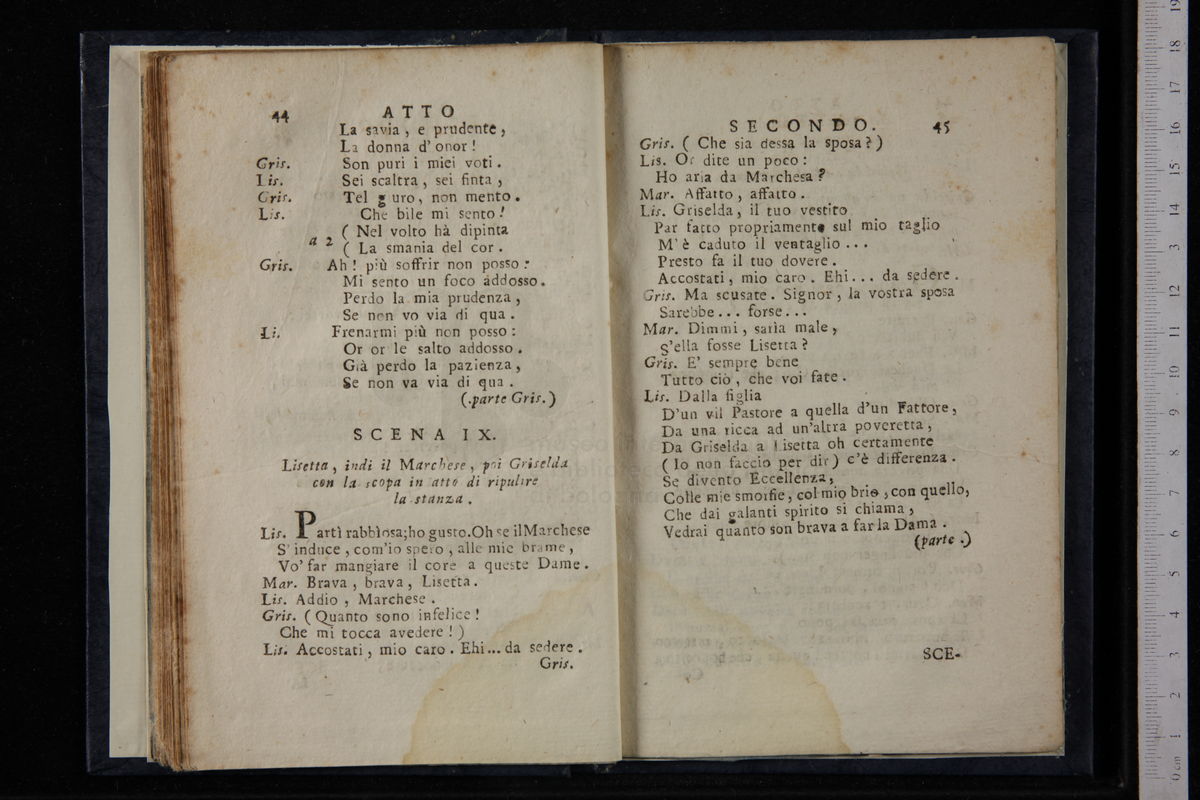 44 ATTO
La savia, e prudente,
La donna d'onor!
Gris. Son puri i miei voti.
Lis. Sei scaltra, sei finta,
Gris. Tel g uro, non mento.
Lis. Che bile mi sento!
a 2 ( Nel volto hà dipinta
( La smania del cor.
Gris. Ah! più soffrir non posso:
Mi sento un foco addosso.
Perdo la mia prudenza,
Se non vo via di qua.
Li. Frenarmi più non posso:
Or or le salto addosso.
Già perdo la pazienza,
Se non va via di qua.
(.parte Gris.)
SCENA IX.
Lisetta, indi il Marchese, poi Griselda
con la scopa in atto di ripulire
la stanza.
Lis. Partì rabbiosa; ho gusto. Oh se il Marchese
S'induce, com'io spero, alle mie brame,
Vo' far mangiare il core a queste Dame.
Mar. Brava, brava, Lisetta.
Lis. Addio, Marchese.
Gris. (Quanto sono infelice!
Che mi tocca avedere!)
Lis. Accostati, mio caro. Ehi... da sedere.
Gris.
SECONDO. 45
Gris. ( Che sia dessa la sposa?)
Lis. Or dite un poco:
Ho aria da Marchesa?
Mar. Affatto, affatto.
Lis. Griselda, il tuo vestito
Par fatto propriamente sul mio taglio
M'è caduto il ventaglio...
Presto fa il tuo dovere.
Accostati, mio caro. Ehi... da sedere.
Gris. Ma scusate. Signor, la vostra sposa
Sarebbe... forse...
Mar. Dimmi, saria male,
S'ella fosse Lisetta?
Gris. E' sempre bene
Tutto ciò, che voi fate.
Lis. Dalla figlia
D'un vil Pastore a quella d'un Fattore,
Da una ricca ad un'altra poveretta,
Da Griselda a Lisetta oh certamente
( Io non faccio per dir) c'è differenza.
Se divento Eccellenza,
Colle mie smorfie, col mio brio, con quello,
Che dai galanti spirito si chiama,
Vedrai quanto son brava a far la Dama.
(parte.)
SCE-